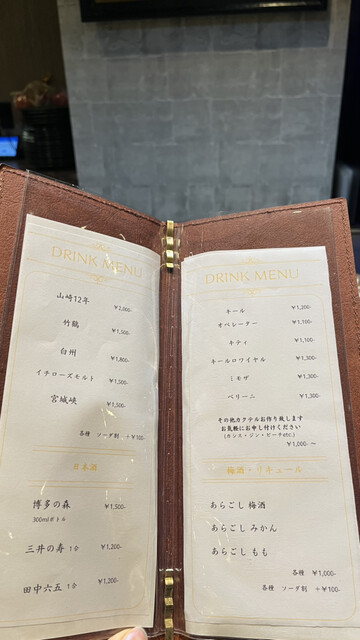 DRINK MENU
山崎12年 ¥2,000-
竹鶴 ¥1,500-
白州 ¥1,800-
イチローズモルト ¥1,500-
宮城峡 ¥1,500-
各種 ソーダ割 +¥100-
日本酒
博多の森 ¥1,500-
300mlボトル
三井の寿 1合 ¥1,200-
田中六五 1合 ¥1,200-
DRINK MENU
キール ¥1,200-
オペレーター ¥1,100-
キティ ¥1,100-
キールロワイヤル ¥1,300-
ミモザ ¥1,300-
ベリーニ ¥1,300-
その他カクテルお作り致します
お気軽にお申し付けください
(カシス・ジン・ピーチetc.)
¥1,000〜
梅酒・リキュール
あらごし 梅酒
あらごし みかん
あらごし もも
各種 ¥1,000-
各種 ソーダ割 +¥100-